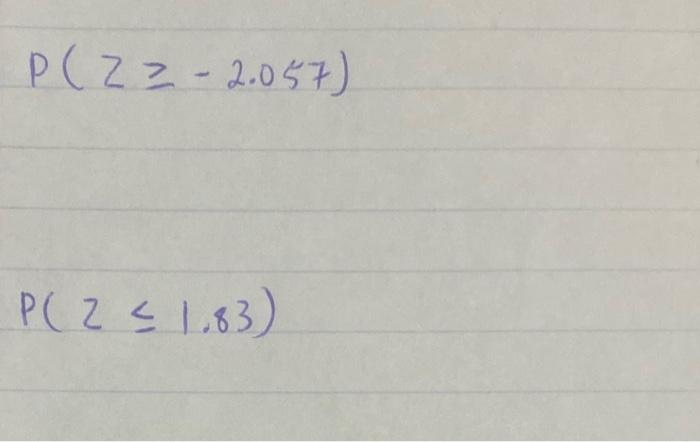 P(Z ≥ - 2.057)
P(Z ≤ 1.83)